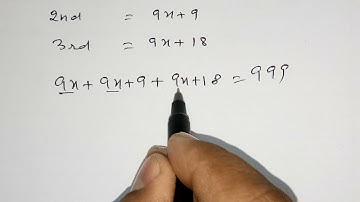 2nd = 9x+9
3rd = 9x+18
9x + 9x + 9 + 9x+18 = 999